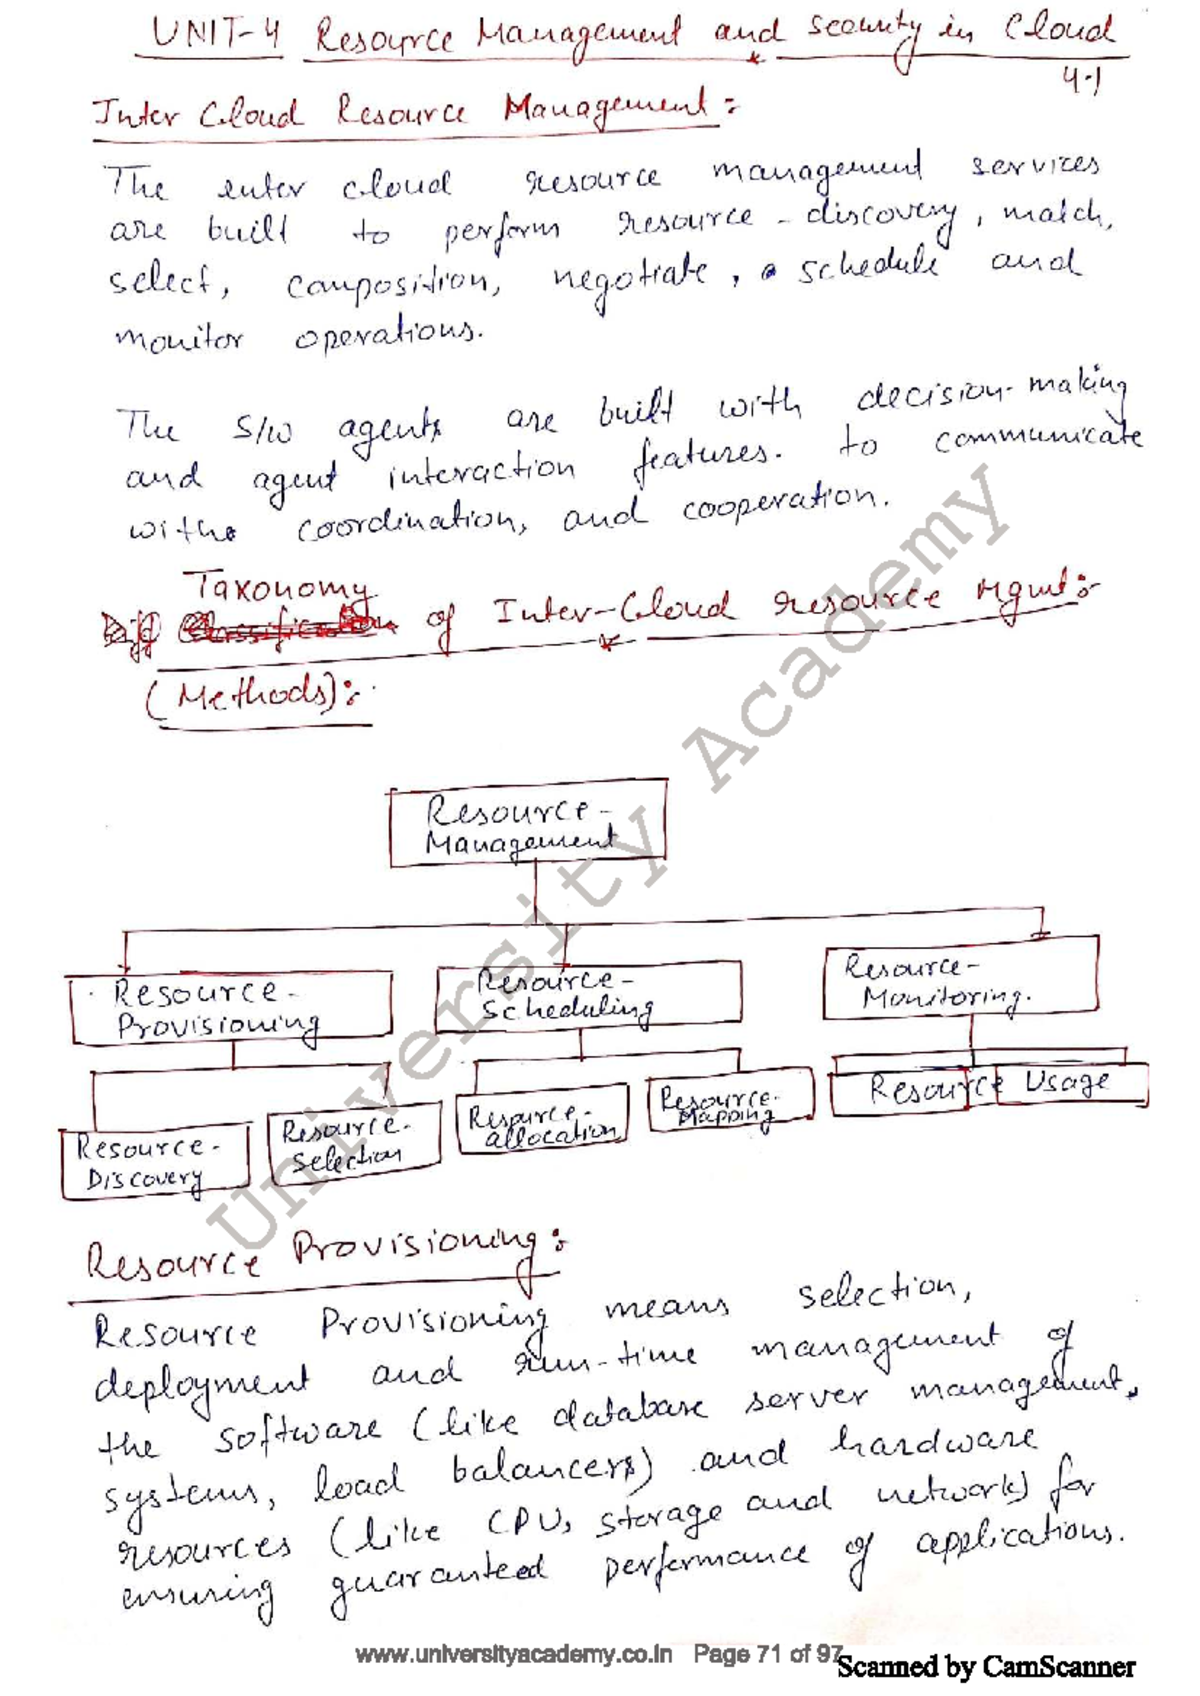 UNIT-4 Resource Management and Security in Cloud
4.1
Inter Cloud Resource Management:
The enter cloud resource management services
are built to perform resource-discovery, match,
select, composition, negotiate, schedule and
monitor operations.
The S/W agents are built with decision-making
and agent interaction features. to communicate
with coordination, and cooperation.
Taxonomy
Diff Classification of Inter-Cloud resource Mgmt:
(Methods):
Resource-
Management
Resource-
Provisioning
Resource-
Scheduling
Resource-
Monitoring.
Resource-
Discovery
Resource-
Selection
Resource-
allocation
Resource-
Mapping
Resource Usage
Resource Provisioning:
Resource Provisioning means selection,
deployment and run-time management of
the software (like database server management,
systems, load balancers) and hardware
resources (like CPU, storage and network) for
ensuring guaranteed performance of applications.
University Academy
www.universityacademy.co.in Page 71 of 97
Scanned by CamScanner